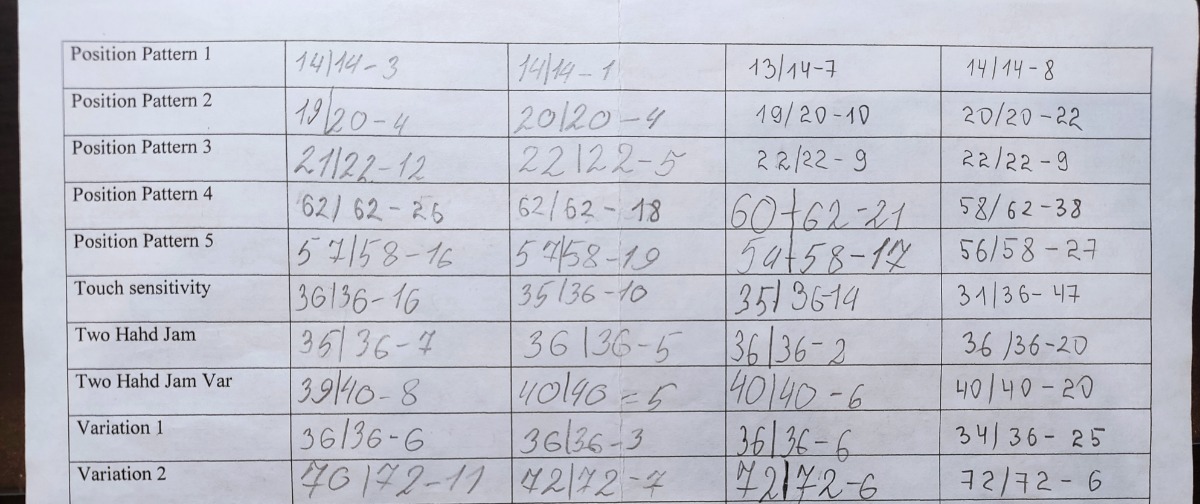 Position Pattern 1 14/14-3 14/14-1 13/14-7 14/14-8
Position Pattern 2 19/20-4 20/20-4 19/20-10 20/20-22
Position Pattern 3 21/22-12 22/22-5 22/22-9 22/22-9
Position Pattern 4 62/62-26 62/62-18 60+62-21 58/62-38
Position Pattern 5 57/58-16 57/58-19 54+58-17 56/58-27
Touch sensitivity 36/36-16 35/36-10 35/36-14 31/36-47
Two Hahd Jam 35/36-7 36/36-5 36/36-2 36/36-20
Two Hahd Jam Var 39/40-8 40/40=5 40/40-6 40/40-20
Variation 1 36/36-6 36/36-3 36/36-6 34/36-25
Variation 2 70/72-11 72/72-7 72/72-6 72/72-6